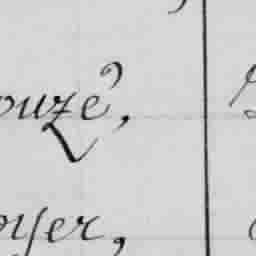 ouzé,
oyer,